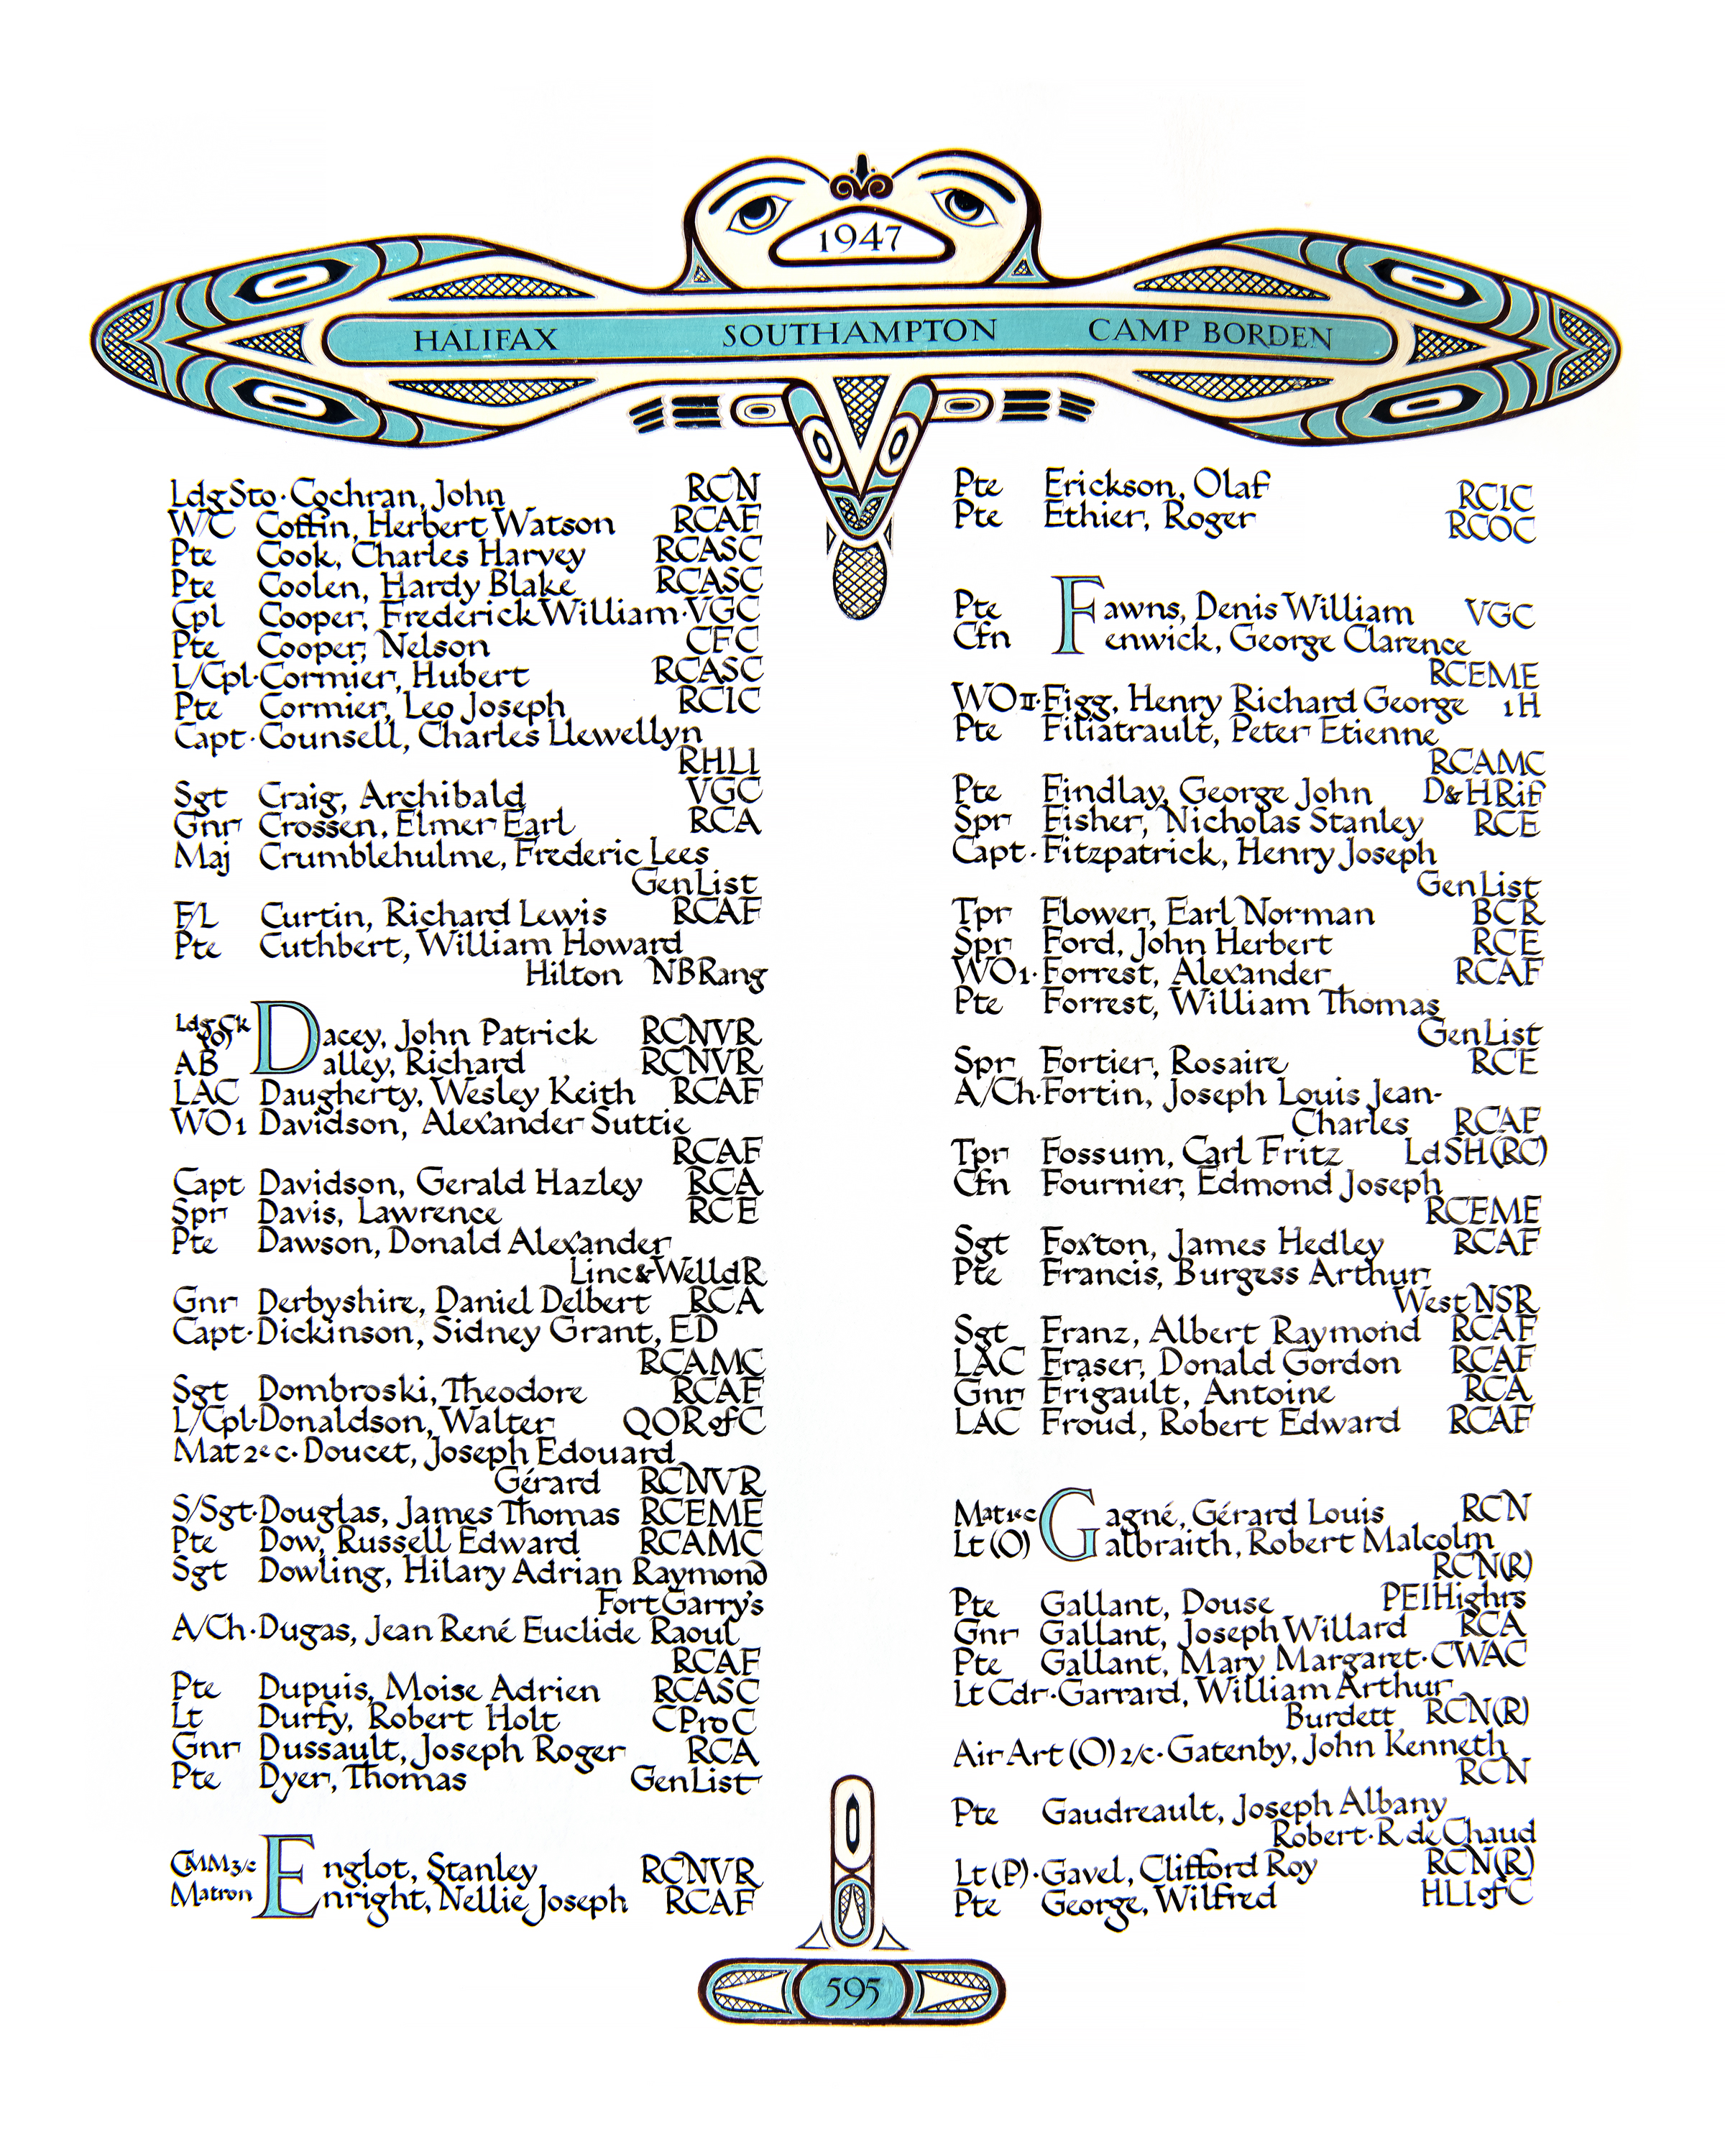 1947
HALIFAX SOUTHAMPTON CAMP BORDEN
Ldg Sto · Cochran, John RCN
W/C Coffin, Herbert Watson RCAF
Pte Cook, Charles Harvey RCASC
Pte Coolen, Hardy Blake RCASC
Cpl Cooper, Frederick William · VGC
Pte Cooper, Nelson CFC
L/Cpl · Cormier, Hubert RCASC
Pte Cormier, Leo Joseph RCIC
Capt · Counsell, Charles Llewellyn
RHLI
Sgt Craig, Archibald VGC
Gnr Crossen, Elmer Earl RCA
Maj Crumblehulme, Frederic Lees
Gen List
F/L Curtin, Richard Lewis RCAF
Pte Cuthbert, William Howard
Hilton NB Rang
Ldg Ck (O) Dacey, John Patrick RCNVR
AB Dalley, Richard RCNVR
LAC Daugherty, Wesley Keith RCAF
WO1 Davidson, Alexander Suttie
RCAF
Capt Davidson, Gerald Hazley RCA
Spr Davis, Lawrence RCE
Pte Dawson, Donald Alexander
Linc & Welld R
Gnr Derbyshire, Daniel Delbert RCA
Capt · Dickinson, Sidney Grant, ED
RCAMC
Sgt Dombroski, Theodore RCAF
L/Cpl · Donaldson, Walter QOR of C
Mat 2e c · Doucet, Joseph Edouard
Gérard RCNVR
S/Sgt · Douglas, James Thomas RCEME
Pte Dow, Russell Edward RCAMC
Sgt Dowling, Hilary Adrian Raymond
Fort Garry's
A/Ch · Dugas, Jean René Euclide Raoul
RCAF
Pte Dupuis, Moise Adrien RCASC
Lt Durfy, Robert Holt C Pro C
Gnr Dussault, Joseph Roger RCA
Pte Dyer, Thomas Gen List
CMM 3/c Englot, Stanley RCNVR
Matron Enright, Nellie Joseph RCAF
Pte Erickson, Olaf RCIC
Pte Ethier, Roger RCOC
Pte Fawns, Denis William VGC
Cfn Fenwick, George Clarence
RCEME
WO II · Figg, Henry Richard George 1H
Pte Filiatrault, Peter Etienne
RCAMC
Pte Findlay, George John D & H Rif
Spr Fisher, Nicholas Stanley RCE
Capt · Fitzpatrick, Henry Joseph
Gen List
Tpr Flower, Earl Norman BCR
Spr Ford, John Herbert RCE
WO1 · Forrest, Alexander RCAF
Pte Forrest, William Thomas
Gen List
Spr Fortier, Rosaire RCE
A/Ch · Fortin, Joseph Louis Jean-
Charles RCAF
Tpr Fossum, Carl Fritz Ld SH (RC)
Cfn Fournier, Edmond Joseph
RCEME
Sgt Foxton, James Hedley RCAF
Pte Francis, Burgess Arthur
West NSR
Sgt Franz, Albert Raymond RCAF
LAC Fraser, Donald Gordon RCAF
Gnr Frigault, Antoine RCA
LAC Froud, Robert Edward RCAF
Mat 1e c Gagné, Gérard Louis RCN
Lt (O) Galbraith, Robert Malcolm
RCN (R)
Pte Gallant, Douse PEI Highrs
Gnr Gallant, Joseph Willard RCA
Pte Gallant, Mary Margaret · CWAC
Lt Cdr · Garrard, William Arthur
Burdett RCN (R)
Air Art (O) 2/c · Gatenby, John Kenneth
RCN
Pte Gaudreault, Joseph Albany
Robert · R de Chaud
Lt (P) · Gavel, Clifford Roy RCN (R)
Pte George, Wilfred HLI of C
595